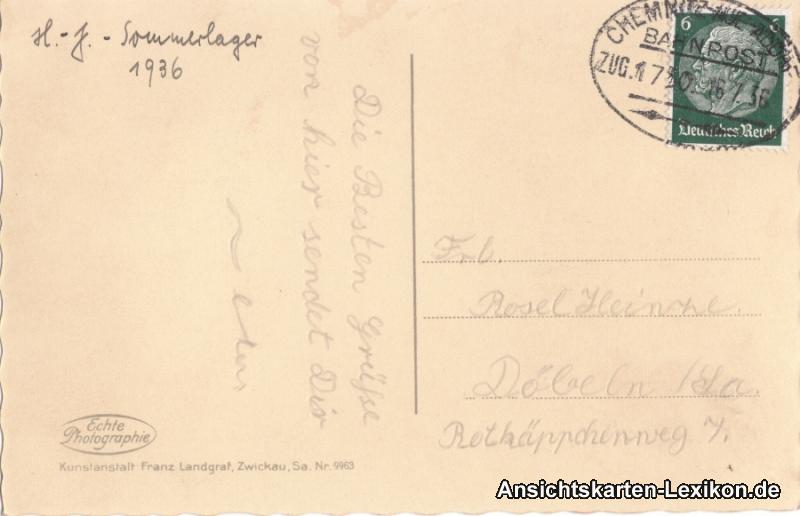 H.-J.-Sommerlager
1936
Die Besten Grüße
von hier sendet Dir
6
6
Deutsches Reich
CHEMNITZ-AUE-ADORF
BAHNPOST
ZUG
16 7 36
Frl.
Rosel Heinze.
Döbeln /Sa.
Rotkäppchenweg 7.
Echte
Photographie
Kunstanstalt Franz Landgraf, Zwickau, Sa. Nr. 9963
Ansichtskarten-Lexikon.de